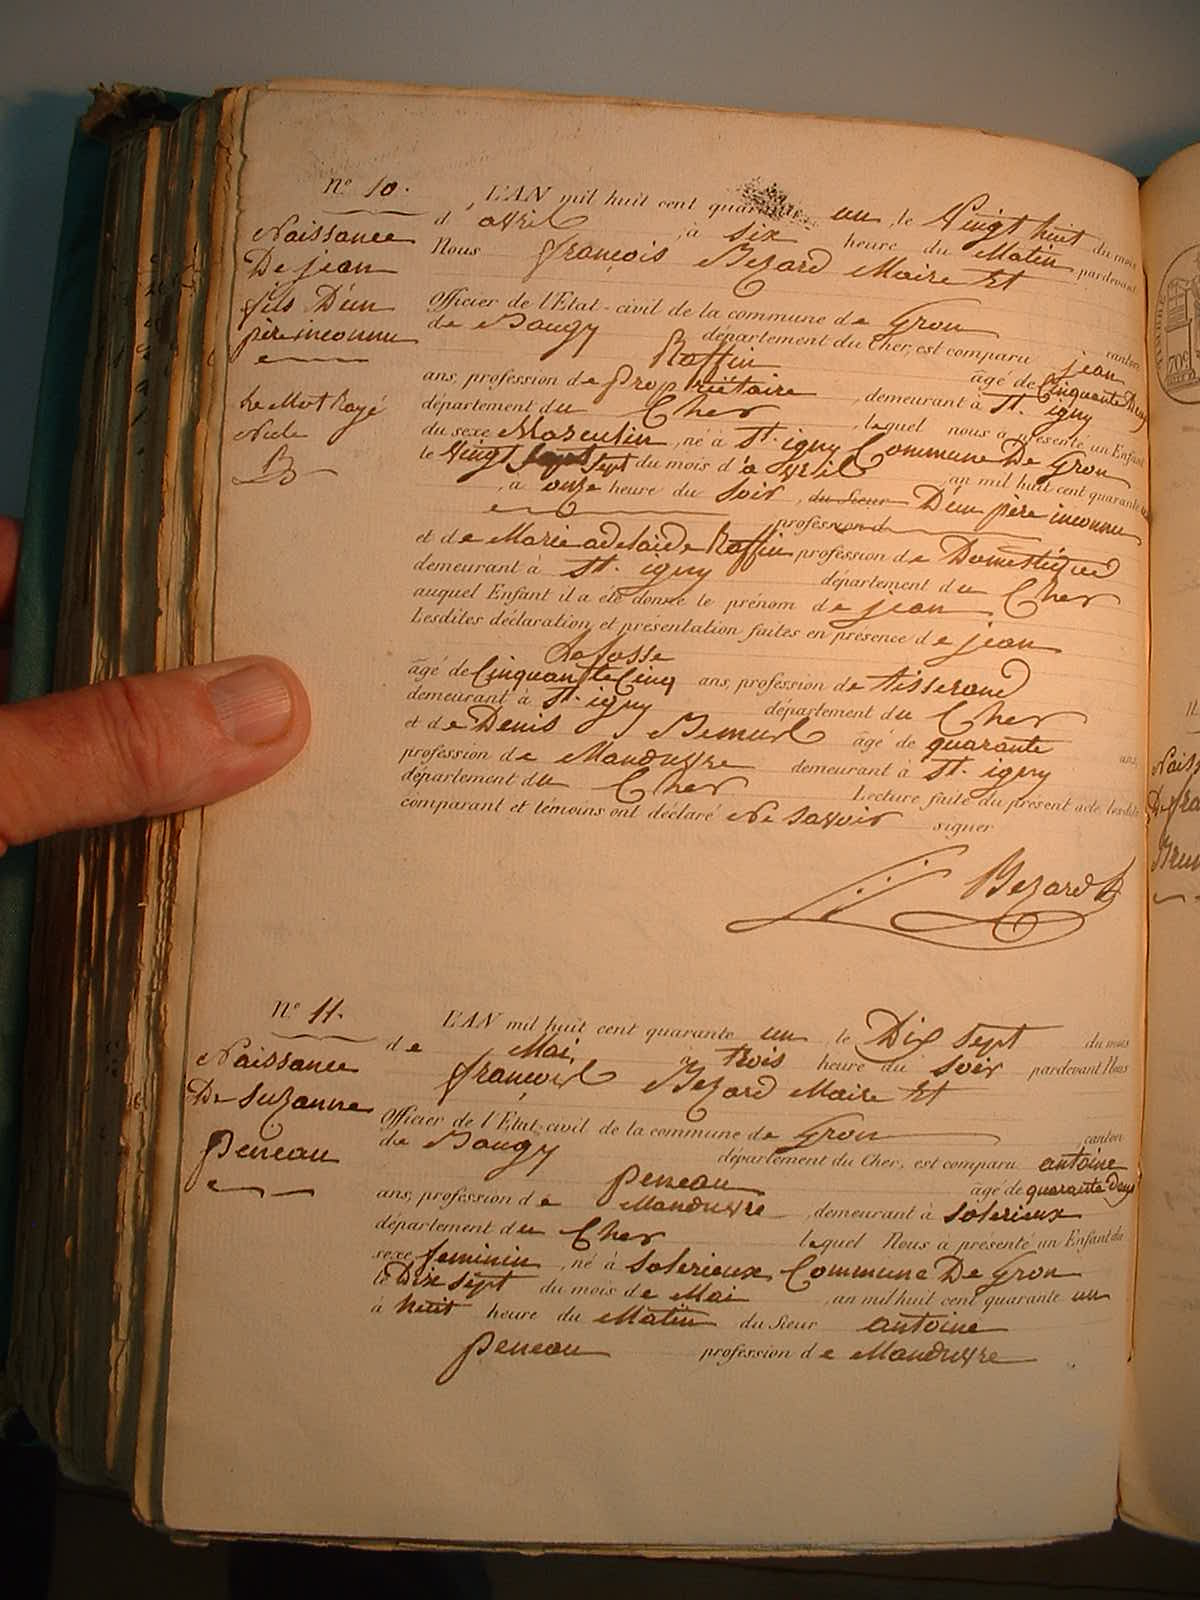 n.° 10.
Naissance
De jean
fils D'un
père inconnu
Le Mot Rayé
Nule
L'AN mil huit cent quarante un, le Vingt huit du mois
d'avril, à six heure du Matin pardevant
Nous françois Bezard Maire Et
Officier de l'Etat-civil de la commune de Gron canton
de Baugy département du Cher, est comparu jean
Raffin âgé de Cinquante
ans, profession de propriétaire, demeurant à St. igny
département du Cher, lequel nous à présenté un Enfant
du sexe Masculin, né à St. igny Commune De Gron
le Vingt sept du mois d'avril an mil huit cent quarante
, à onze heure du Soir, du Sieur D'un père inconnu
profession d
et de Marie adelaide Raffin profession de Domestique
demeurant à St. igny département du Cher
auquel Enfant il a été donné le prénom de jean
Lesdites déclaration et présentation faites en présence de jean
Lafosse
âgé de Cinquante Cinq ans, profession de tisserand
demeurant à St. igny département du Cher
et de Denis âgé de quarante ans,
profession de Manœuvre demeurant à St. igny
département du Cher Lecture faite du présent acte, lesdits
comparant et témoins ont déclaré Ne savoir signer
Bezard
n.° 11.
Naissance
De Suzanne
peneau
L'AN mil huit cent quarante un, le Dix sept du mois
de Mai, à trois heure du soir pardevant Nous
françois Bezard Maire Et
Officier de l'Etat-civil de la commune de Gron canton
de Baugy département du Cher, est comparu antoine
peneau âgé de quarante Deux
ans, profession de Manœuvre, demeurant à solerieux
département du Cher lequel Nous à présenté un Enfant du
sexe feminin, né à solerieux Commune De Gron
le Dix sept du mois de Mai, an mil huit cent quarante un
à huit heure du Matin du Sieur antoine
peneau profession de Manœuvre
Naiss
De fra
Brun